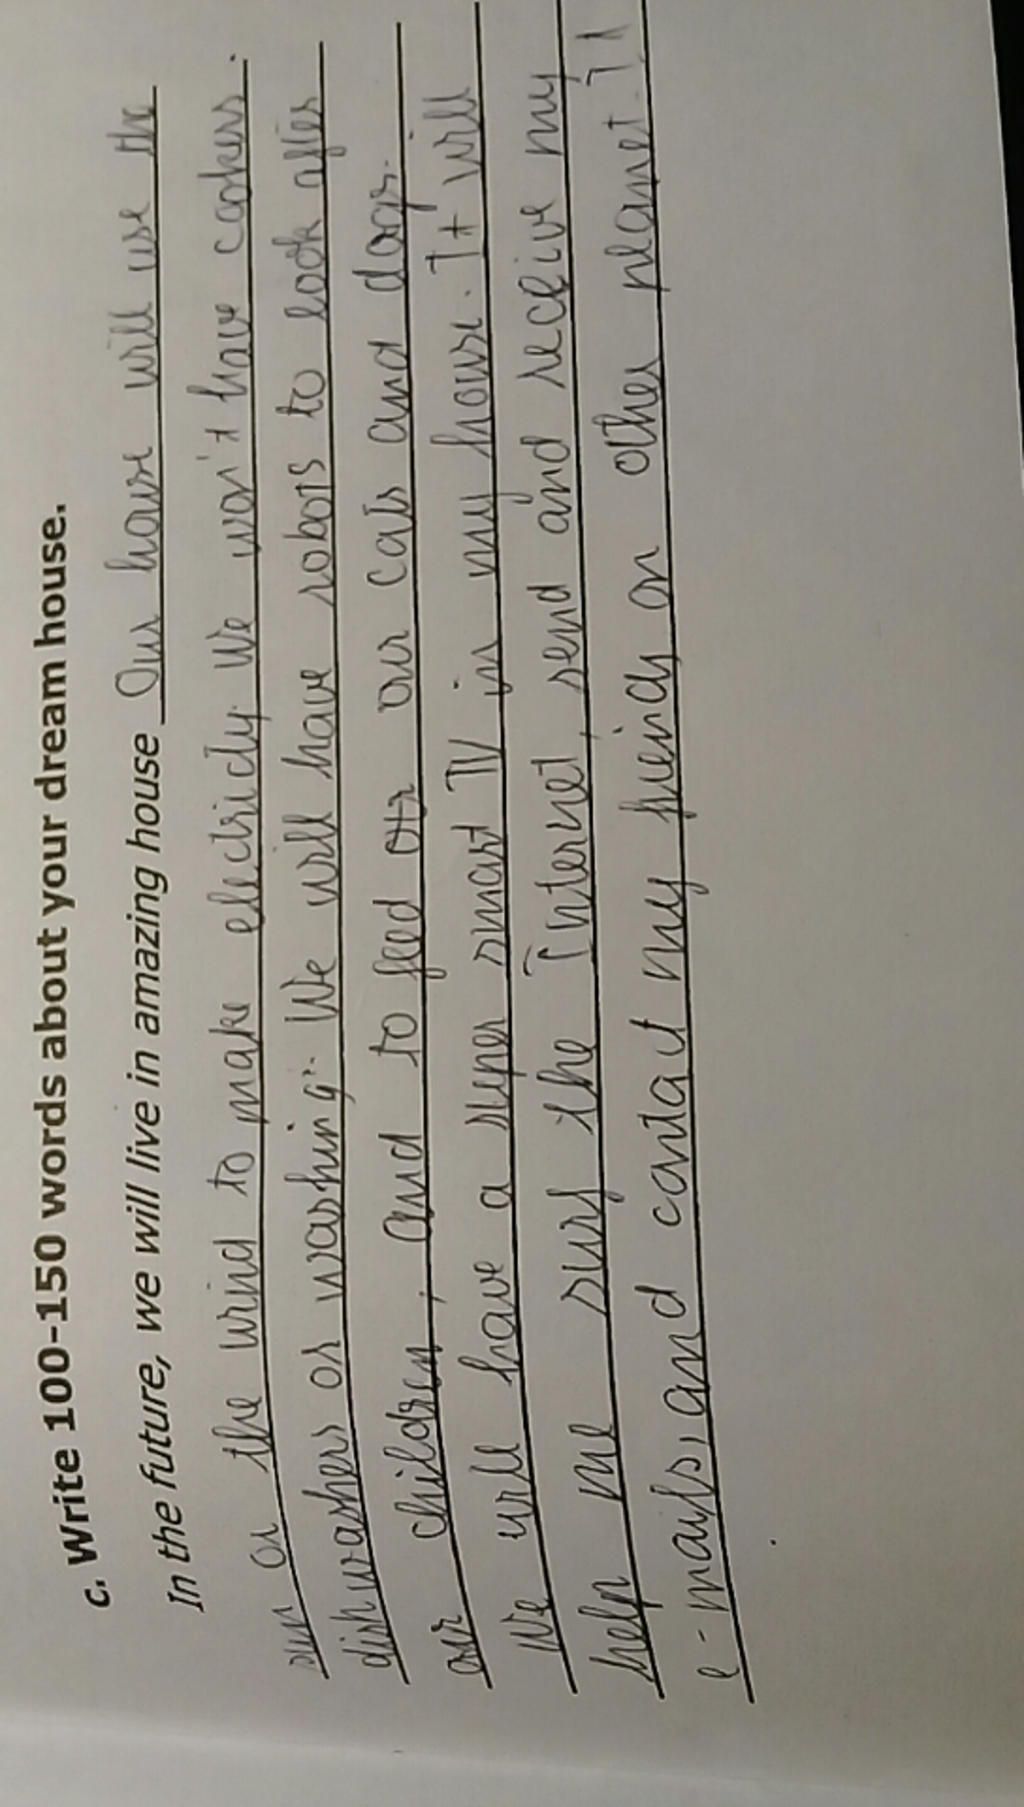 c. Write 100-150 words about your dream house.
In the future, we will live in amazing house Our house will use the
sun or the wind to make electricity. We won't have cookers.
dishwashers or washing. We will have robots to look after
our children, and to feed our our cats and dogs.
We will have a super smart TV in my house. It will
help me surf the Internet, send and receive my
e-mails, and contact my freinds on other planet.